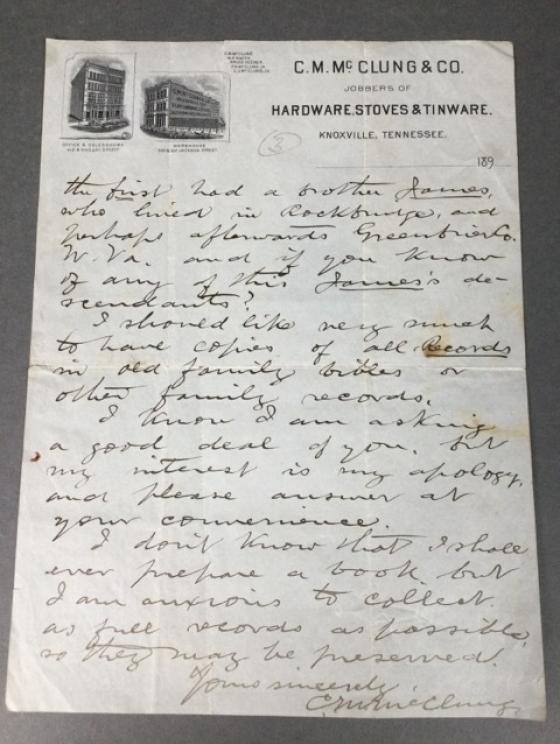 C. M. Mc CLUNG & CO.
JOBBERS OF
HARDWARE, STOVES & TINWARE.
KNOXVILLE, TENNESSEE.
OFFICE & SALESROOMS
WAREHOUSE
3
189
the first had a brother James,
who lived in Rockbridge, and
perhaps afterwards Greenbrier Co.
W. Va. and if you know
of any of this James's de-
scendants?
I should like very much
to have copies of all Records
in old family bibles or
other family records.
I know I am asking
a good deal of you, but
my interest is my apology,
and please answer at
your convenience.
I don't know that I shall
ever prepare a book, but
I am anxious to collect
as full records as possible,
so they may be preserved.
Yours sincerely,
C. M. McClung,